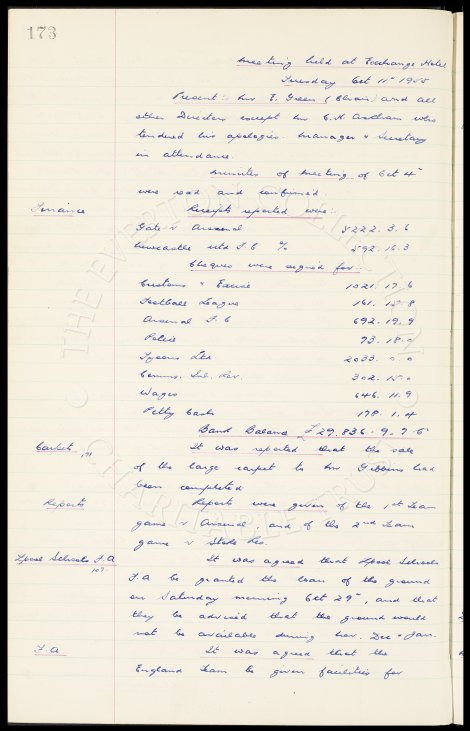 173
Meeting held at Exchange Hotel
Tuesday Oct 11th 1955
Present:- Mr E. Green (Chair) and all
other Directors except Mr C.H. Askham who
tendered his apologies. Manager & Secretary
in attendance.
Minutes of Meeting of Oct 4th
were read and confirmed.
Finance Receipts reported were:-
Gate v Arsenal 5222. 3. 6
Newcastle Utd F.C % 592. 16. 3
Cheques were signed for:-
Customs & Excise 1021. 17. 6
Football League 161. 15. 8
Arsenal F.C 692. 19. 9
Police 73. 18. 0
Tysons Ltd 2033. 0. 0
Comms. Inl. Rev. 302. 15. 0
Wages 646. 11. 9
Petty Cash 178. 1. 4
Bank Balance £29,836. 9. 7
Carpet 171 It was reported that the sale
of the large carpet to Mr Gibbins had
been completed
Reports Reports were given of the 1st Team
game v Arsenal, and of the 2nd Team
game v Stoke Res.
Lpool Schools F.A It was agreed that Lpool Schools
107
F.A be granted the loan of the ground
on Saturday morning Oct 29th, and that
they be advised that the ground would
not be available during Nov. Dec & Jan.
F.A It was agreed that the
England Team be given facilities for
THE EVERTON COLLECTION
CHARITABLE TRUST